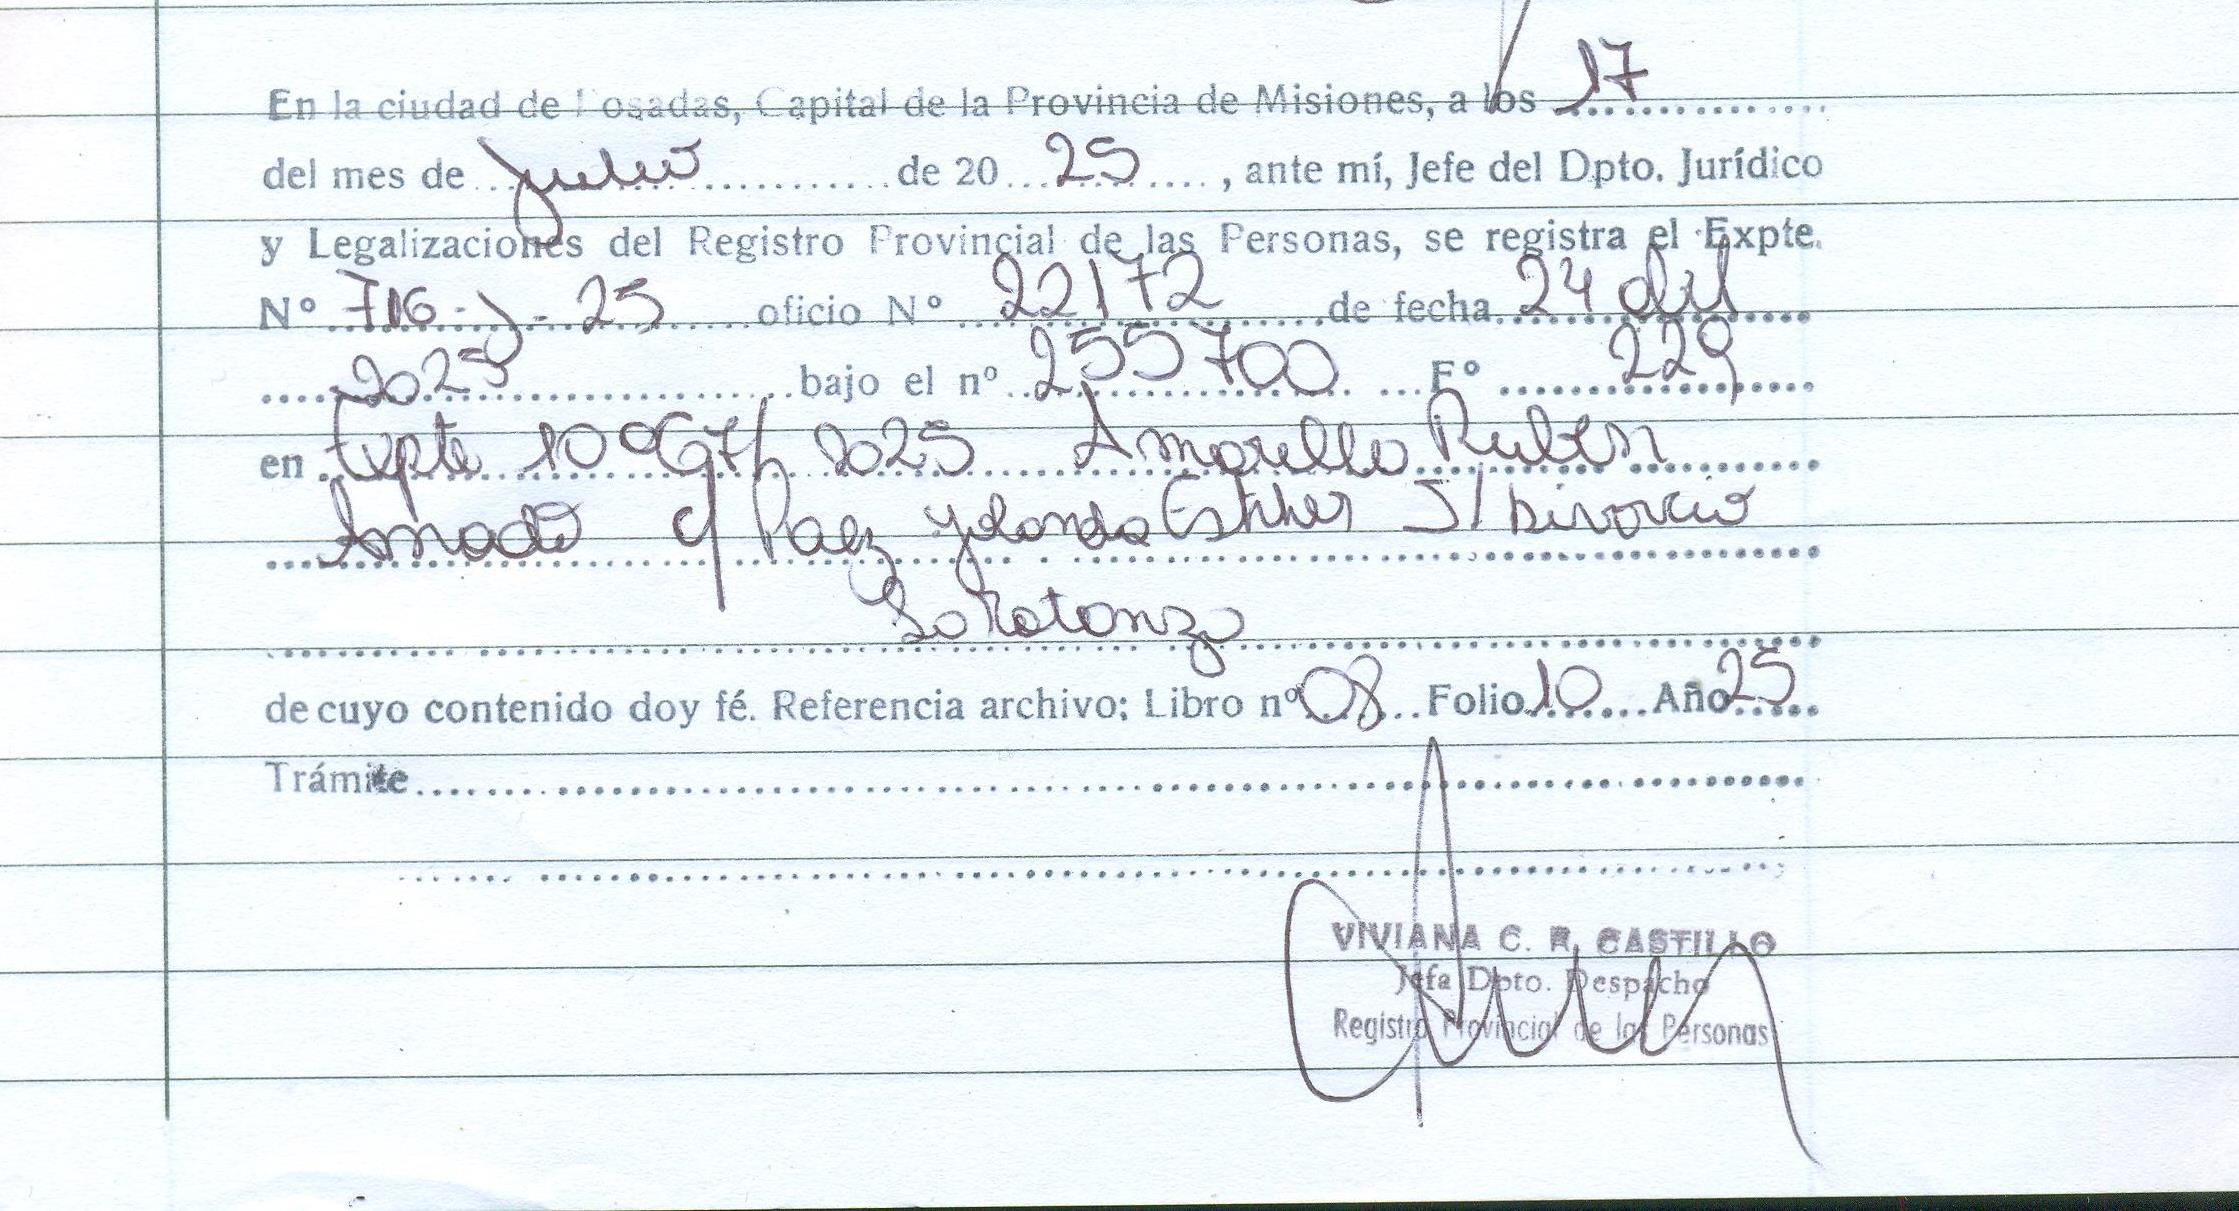 En la ciudad de Posadas, Capital de la Provincia de Misiones, a los 17
del mes de julio de 20 25, ante mí, Jefe del Dpto. Jurídico
y Legalizaciones del Registro Provincial de las Personas, se registra el Expte.
Nº 716-J-25 oficio Nº 22172 de fecha 24 del
2025 bajo el nº 255700 Fº 229
en Expte 2025 Amarillo Ruben
Amado c/ Paez Yolanda Esther S/ Divorcio
de cuyo contenido doy fé. Referencia archivo; Libro nº 08 Folio 10 Año 25
Trámite
VIVIANA C. R. CASTILLO
Jefa Dpto. Despacho
Registro Provincial de las Personas